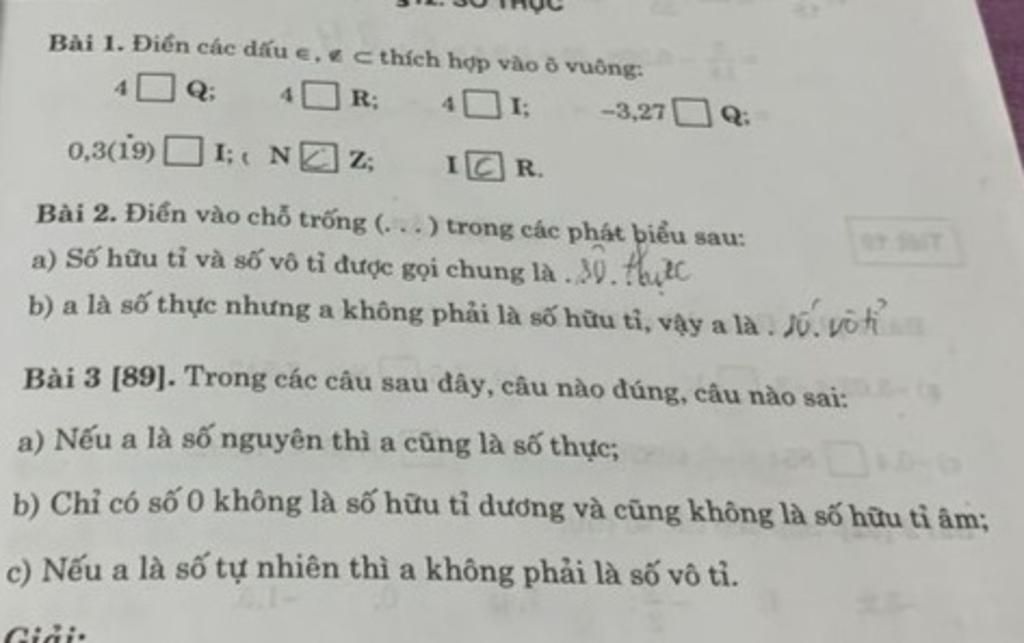 §12. SỐ THỰC
Bài 1. Điền các dấu ∈, ∉ ⊂ thích hợp vào ô vuông:
4 □ Q; 4 □ R; 4 □ I; -3,27 □ Q;
0,3(19) □ I; ( N ⊂ Z; I ⊂ R.
Bài 2. Điền vào chỗ trống (. . . ) trong các phát biểu sau:
a) Số hữu tỉ và số vô tỉ được gọi chung là . số. thực
b) a là số thực nhưng a không phải là số hữu tỉ, vậy a là . số. vô tỉ
Bài 3 [89]. Trong các câu sau đây, câu nào đúng, câu nào sai:
a) Nếu a là số nguyên thì a cũng là số thực;
b) Chỉ có số 0 không là số hữu tỉ dương và cũng không là số hữu tỉ âm;
c) Nếu a là số tự nhiên thì a không phải là số vô tỉ.
Giải: